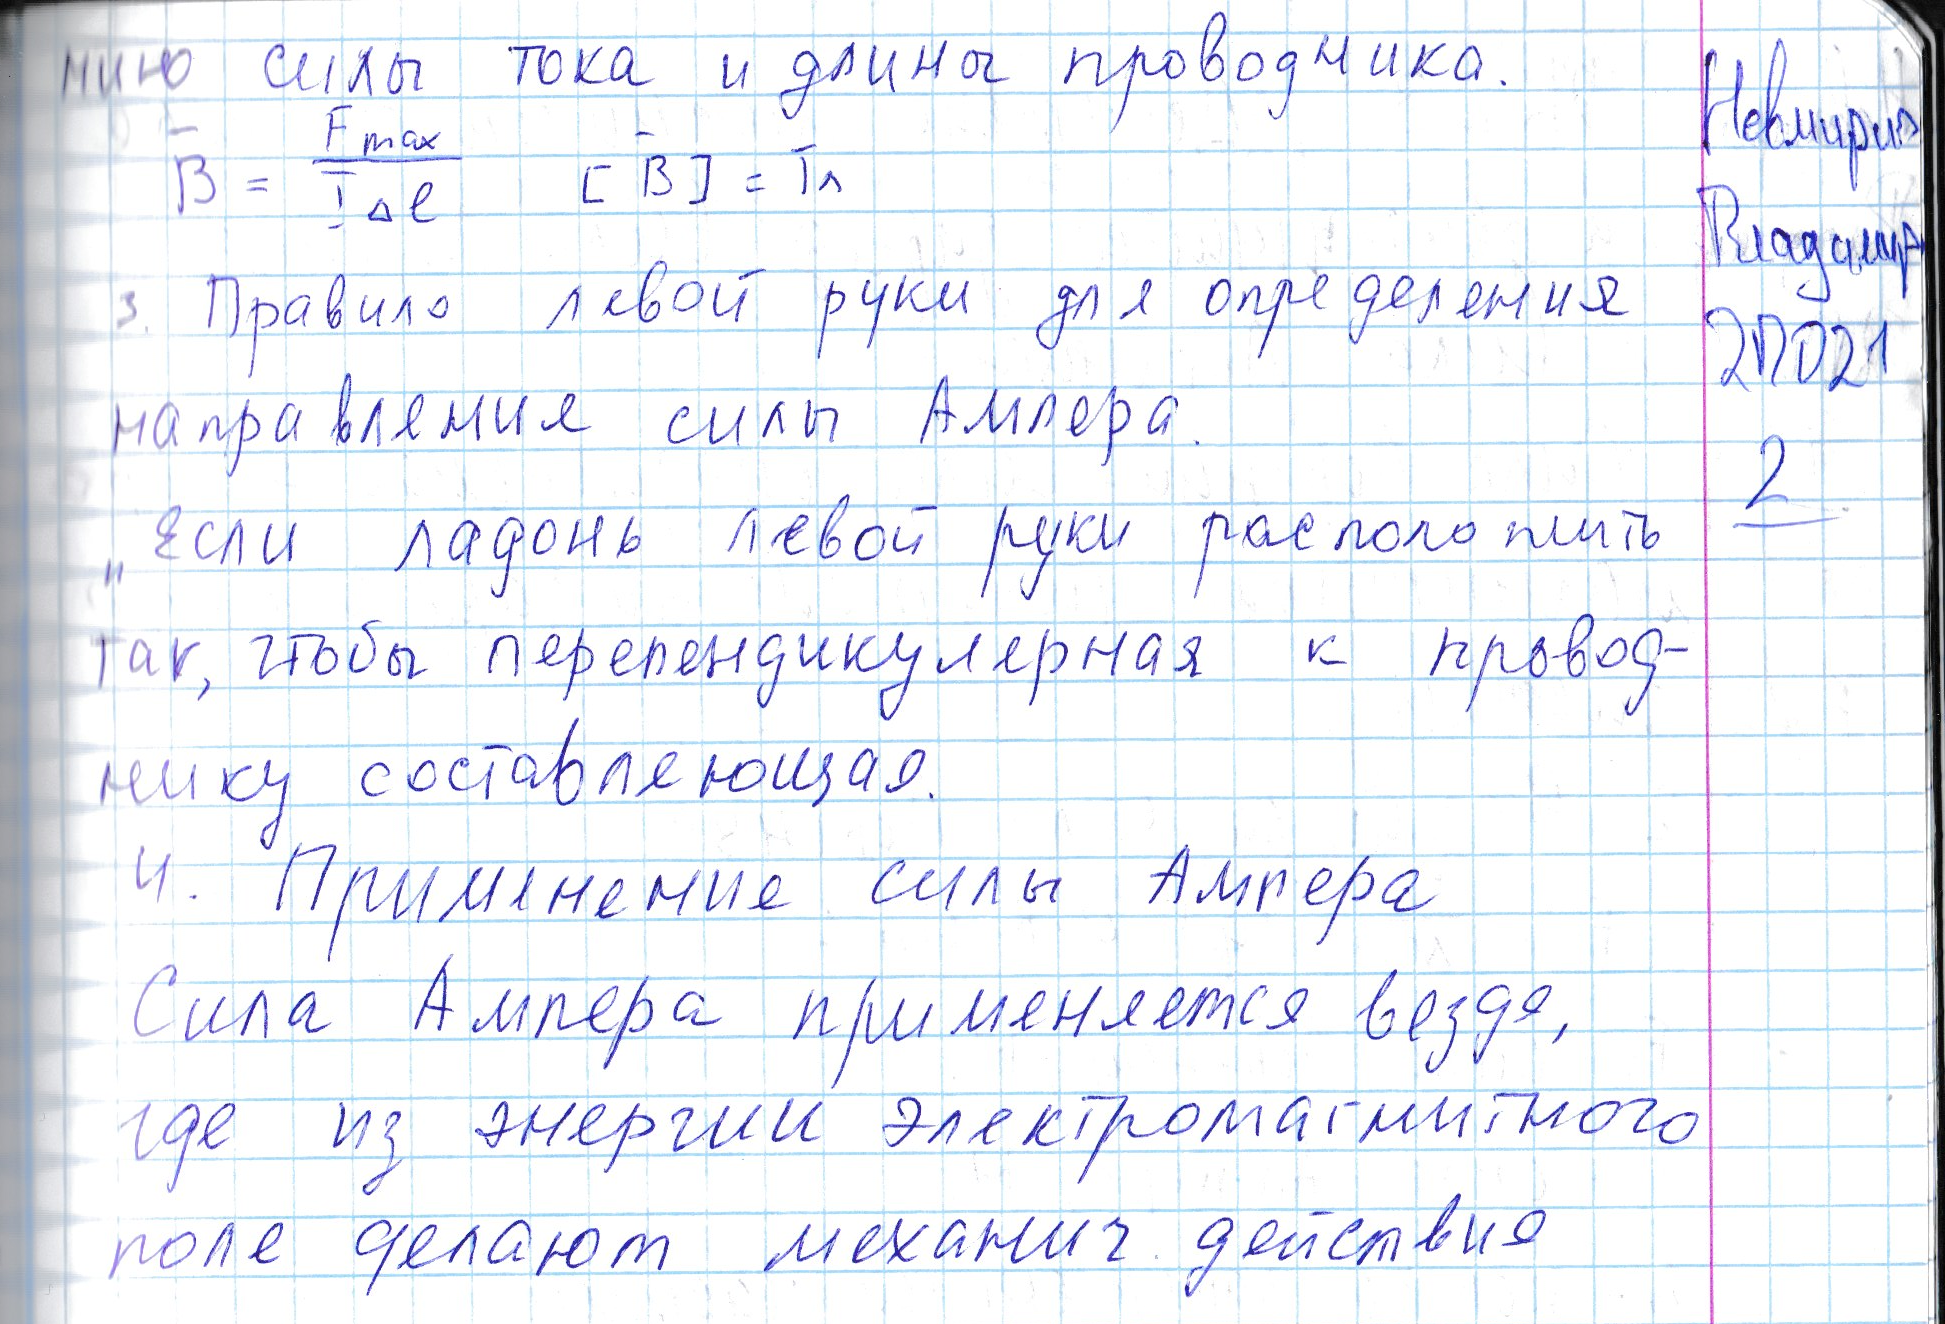 нию силы тока и длины проводника.
B̄ = F max / I Δ l [B̄] = Тл
3. Правило левой руки для определения
направления силы Ампера.
„Если ладонь левой руки расположить
так, чтобы перепендикулярная к провод-
нику составляющая.
4. Применение силы Ампера
Сила Ампера применяется везде,
где из энергии электромагнитного
поля делают механич. действия
Владимир
2П021
2